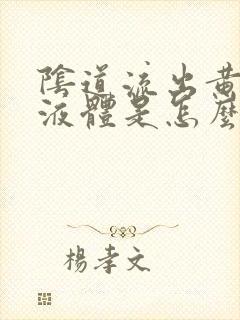 陰道流出黃
液體是怎麼
楊孝文